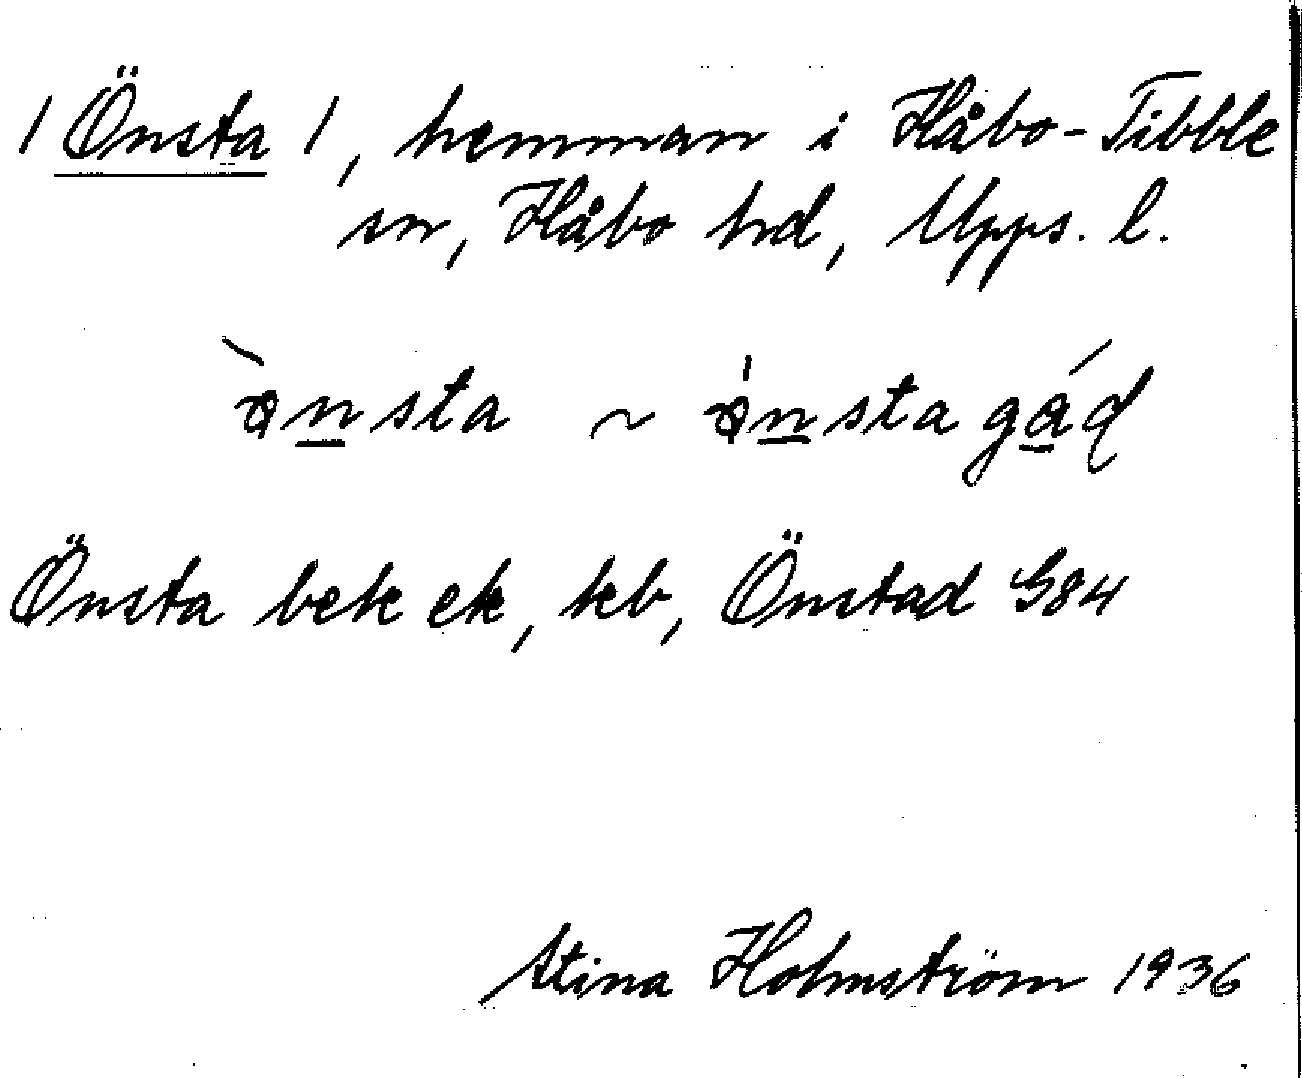 / Önsta /, hemman i Håbo-Tibble
sn, Håbo hd, Upps. l.
ö̀nsta ~ ö́nstagáḍ
Önsta bek ek, kb, Önstad G84
Stina Holmström 1936